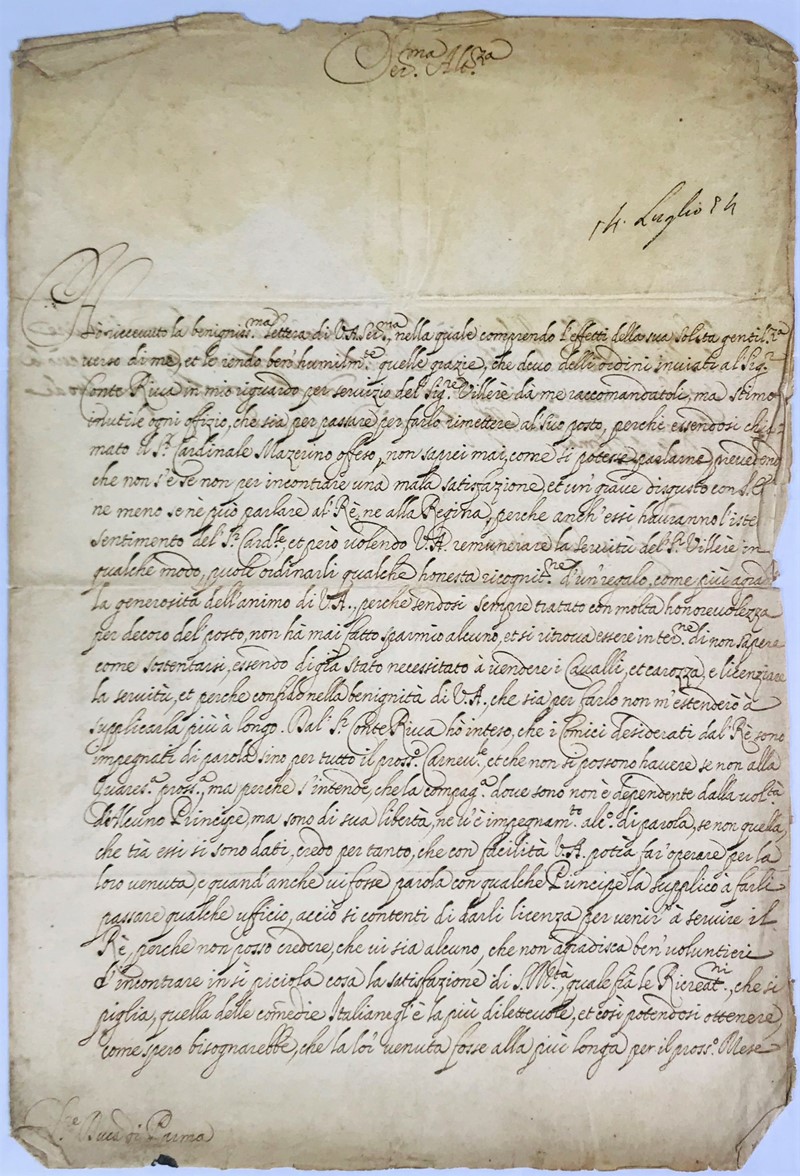 Ser.ma Alt.za
14. Luglio 54
Hò riccevuto la benigniss.ma lettera di V.A. Ser.ma, nella quale comprendo l'effetti della sua solita gentil.za
verso di me, et le rendo ben' humilm.te quelle grazie, che devo delli ordini inviati al Sig.r
Conte Riva in mio riguardo per servizio del Sig.re Villerè da me raccomandatoli, ma stimo
inutile ogni offizio, che sia per passare per farlo rimettere al suo posto, perche essendosi chia-
mato il S.r Cardinale Mazerino offeso, non saprei mai, come si potesse parlarne, prevedendo
che non s'è se non per incontrare una mala satisfazione, et un' grave disgusto con S. E.
ne meno se nè può parlare al' Rè, ne alla Regina, perche anch' essi hauranno l'iste
sentimento del' S.r Card.le, et però volendo V.A. remunerare la servitù del' S.r Villerè in
qualche modo, puole ordinarli qualche honesta ricognit.ne d'un' regalo, come più agrad
la generosità dell'animo di V.A., perche sendosi sempre trattato con molta honorevolezza
per decoro del' posto, non hà mai fatto sparmio alcuno, et si ritroua essere in ter.ne di non sapere
come sostentarsi, essendo di già stato necessitato à vendere i Cavalli, et carozza, e licenziare
la servitù, et perche confido nella benignità di V.A., che sia per farlo non m'estenderò à
supplicarla più à longo. Dal' S.r Conte Riva hò inteso, che i Comici desiderati dal' Rè sono
impegnati di parola sino per tutto il pross.o Carnev.le, et che non si possono havere se non alla
Quares.a pross.a, ma perche s'intende, che la compag.a dove sono non è dependente dalla volt.a
d'alcuno Principe, ma sono di sua libertà, ne v'è impegnam.to alc.o di parola, se non quella,
che trà essi si sono dati, credo per tanto, che con facilità V.A. potrà far' operare per la
loro venuta, e quand' anche vi fosse parola con qualche Principe la supplico à farli
passare qualche ufficio, acciò si contenti di darli licenza per venir' à servire il
Rè, perche non posso credere, che vi sia alcuno, che non agradisca ben' voluntieri
d'incontrare in sì piciola cosa la satisfazione di S. M.tà, quale frà le Ricreat.ni, che si
piglia, quella delle comedie Italiane gl' è la più dilettevole, et così potendosi ottenere,
come spero bisognarebbe, che la lor' venuta fosse alla più longa per il pross.o Mese
S.re Duca di Parma